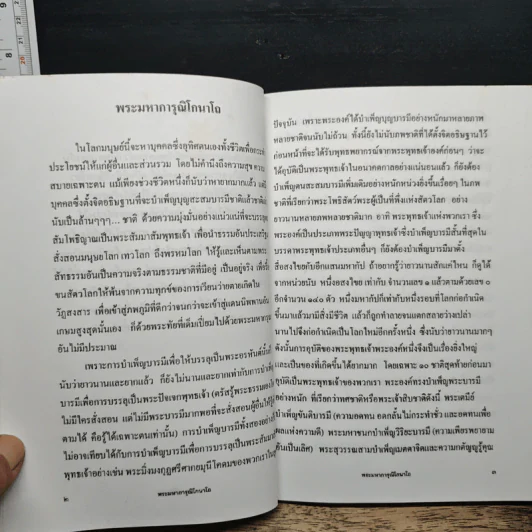 พระมหาการุณิโกนาโถ
ในโลกมนุษย์นี้จะหาบุคคลซึ่งอุทิศตนเองทั้งชีวิตเพื่อ
ประโยชน์ให้แก่ผู้อื่นและส่วนรวม โดยไม่คำนึงถึงความสุข ความ
สบายเฉพาะตน แม้เพียงช่วงชีวิตหนึ่งก็นับว่าหายากมากแล้ว
บุคคลซึ่งตั้งจิตอธิษฐานที่จะบำเพ็ญบุญสะสมบารมีชาติแล้วชาติ
นับเป็นล้านๆๆๆ... ชาติ ด้วยความมุ่งมั่นอย่างแน่วแน่ที่จะบรรลุ
สัมโพธิญาณเป็นพระสัมมาสัมพุทธเจ้า เพื่อนำธรรมอันประเสริฐ
สั่งสอนมนุษย์โลก เทวโลก ถึงพรหมโลก ให้รู้และเห็นตาม
สัทธรรมอันเป็นความจริงตามธรรมชาติที่มีอยู่ เป็นอยู่จริง เพื่อ
ขนสัตว์โลกให้พ้นจากความทุกข์ของการเวียนว่ายตายเกิดใน
วัฏสงสาร เพื่อเข้าสู่ภพภูมิที่ดีกว่าจนกว่าจะเข้าสู่แดนนิพพานอัน
เกษมสูงสุดนั้นเอง ก็ด้วยพระทัยที่เต็มเปี่ยมไปด้วยพระมหากรุณา
อันไม่มีประมาณ
เพราะการบำเพ็ญบารมีเพื่อให้บรรลุเป็นพระอรหันต์นั้นก็
นับว่ายาวนานและยากแล้ว ก็ยังไม่นานและยากเท่ากับการบำเพ็ญ
บารมีเพื่อการบรรลุเป็นพระปัจเจกพุทธเจ้า (ตรัสรู้พระธรรมเอง
ไม่มีใครสั่งสอน แต่ไม่มีพระบารมีมากพอที่จะสั่งสอนผู้อื่นให้รู้
ตามได้ คือรู้ได้เฉพาะตนเท่านั้น) การบำเพ็ญบารมีทั้งสองอย่าง
ไม่อาจเทียบได้กับการบำเพ็ญบารมีเพื่อการบรรลุเป็นพระสัมมาสัม
พุทธเจ้าอย่างเช่น พระมิ่งมงกุฎศรีศากยมุนีโคดมของพวกเราใน
๒
พระมหาการุณิโกนาโถ
ปัจจุบัน เพราะพระองค์ได้บำเพ็ญบุญบารมีอย่างหนักมาหลายภพ
หลายชาติจนนับไม่ถ้วน ทั้งนี้ยังไม่นับภพชาติที่ได้ตั้งจิตอธิษฐานไว้
ก่อนหน้าที่จะได้รับพุทธพยากรณ์จากพระพุทธเจ้าองค์ก่อนๆ ว่าจะ
ได้อุบัติเป็นพระพุทธเจ้าในอนาคตกาลอย่างแน่นอนแล้ว ก็ยังต้อง
บำเพ็ญตนสะสมบารมีเพิ่มเติมอย่างหนักหน่วงยิ่งขึ้นเรื่อยๆ ในภพ
ชาติที่เรียกว่าพระโพธิสัตว์พระผู้เป็นที่พึ่งแห่งสัตว์โลก อย่าง
ยาวนานหลายภพหลายชาติมาก อาทิ พระพุทธเจ้าแห่งพวกเรา ซึ่ง
พระองค์เป็นประเภทพระปัญญาพุทธเจ้า ซึ่งบำเพ็ญบารมีสั้นที่สุดใน
บรรดาพระพุทธเจ้าประเภทอื่นๆ ก็ยังต้องบำเพ็ญบารมีมาตั้ง
สี่อสงไขยกับอีกแสนมหากัป ถ้าอยากรู้ว่ายาวนานสักแค่ไหน ก็ดูได้
จากหน่วยนับ หนึ่งอสงไขย เท่ากับ จำนวนเลข ๑ แล้วตามด้วยเลข ๐
อีกจำนวน ๑๔๐ ตัว หนึ่งมหากัปก็เท่ากับหนึ่งรอบที่โลกก่อกำเนิด
ขึ้นมาแล้วมามีสิ่งมีชีวิต แล้วก็ถูกทำลายจนแตกสลายว่างเปล่า
นานไปจึงก่อกำเนิดเป็นโลกใหม่อีกครั้งหนึ่ง ซึ่งนับว่ายาวนานมากๆ
ดังนั้นการอุบัติของพระพุทธเจ้าพระองค์หนึ่งจึงเป็นเรื่องยิ่งใหญ่
และเป็นของที่เกิดขึ้นได้ยากมาก โดยเฉพาะ ๑๐ ชาติสุดท้ายก่อนมา
อุบัติเป็นพระพุทธเจ้าของพวกเรา พระองค์ทรงบำเพ็ญพระบารมี
อย่างหนัก ที่เรียกว่าทศชาติหรือพระเจ้าสิบชาติดังนี้ พระเตมีย์
บำเพ็ญขันติบารมี (ความอดทน อดกลั้นไม่กระทำชั่ว และอดทนเพื่อ
ผลแห่งความดี) พระมหาชนกบำเพ็ญวิริยะบารมี (ความเพียรพยายาม
อันเป็นเลิศ) พระสุวรรณสามบำเพ็ญเมตตาจิตและความกตัญญูรู้คุณ
พระมหาการุณิโกนาโถ
๓